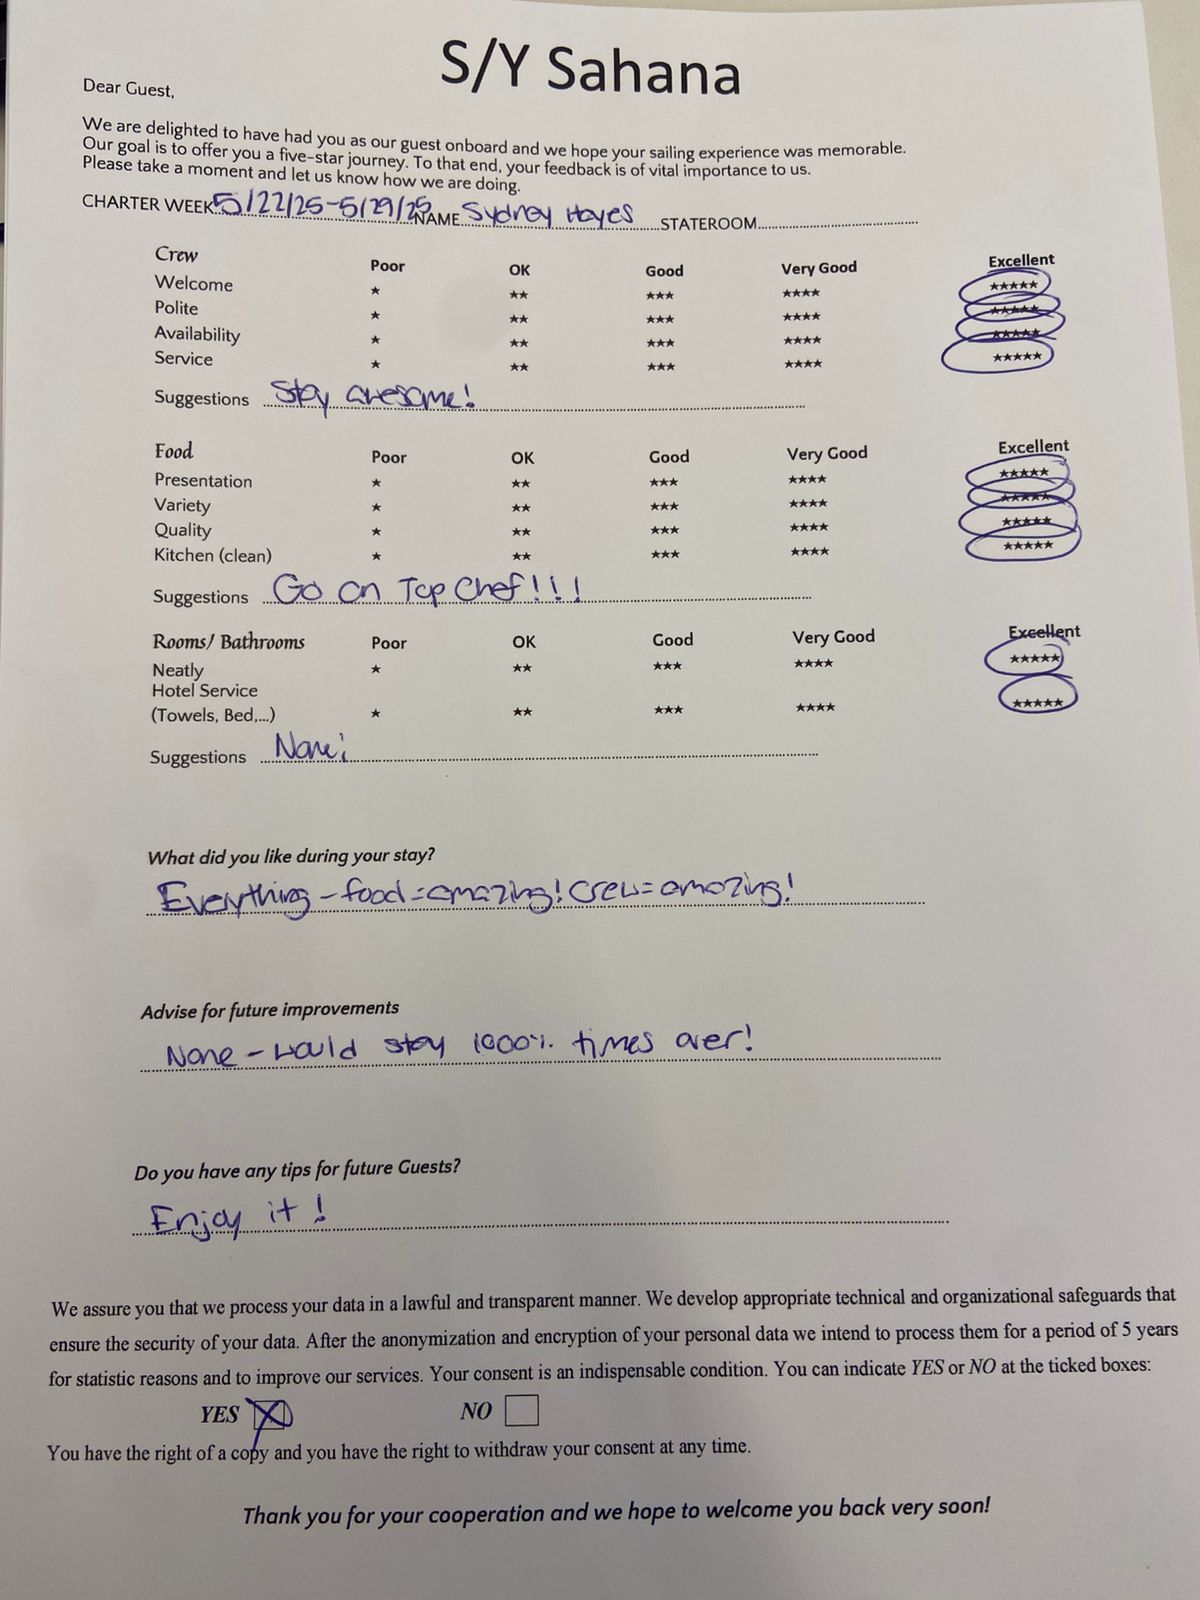 S/Y Sahana
Dear Guest,
We are delighted to have had you as our guest onboard and we hope your sailing experience was memorable.
Our goal is to offer you a five-star journey. To that end, your feedback is of vital importance to us.
Please take a moment and let us know how we are doing.
CHARTER WEEK 5/22/25-5/29/25 NAME Sydney Hayes STATEROOM
Crew Poor OK Good Very Good Excellent
Welcome ★ ★★ ★★★ ★★★★ ★★★★★
Polite ★ ★★ ★★★ ★★★★ ★★★★★
Availability ★ ★★ ★★★ ★★★★ ★★★★★
Service ★ ★★ ★★★ ★★★★ ★★★★★
Suggestions Stay awesome!
Food Poor OK Good Very Good Excellent
Presentation ★ ★★ ★★★ ★★★★ ★★★★★
Variety ★ ★★ ★★★ ★★★★ ★★★★★
Quality ★ ★★ ★★★ ★★★★ ★★★★★
Kitchen (clean) ★ ★★ ★★★ ★★★★ ★★★★★
Suggestions Go on Top Chef!!!
Rooms/ Bathrooms Poor OK Good Very Good Excellent
Neatly ★ ★★ ★★★ ★★★★ ★★★★★
Hotel Service
(Towels, Bed,...) ★ ★★ ★★★ ★★★★ ★★★★★
Suggestions None!
What did you like during your stay?
Everything - food = amazing! Crew = amazing!
Advise for future improvements
None - would stay 1000% times over!
Do you have any tips for future Guests?
Enjoy it!
We assure you that we process your data in a lawful and transparent manner. We develop appropriate technical and organizational safeguards that
ensure the security of your data. After the anonymization and encryption of your personal data we intend to process them for a period of 5 years
for statistic reasons and to improve our services. Your consent is an indispensable condition. You can indicate YES or NO at the ticked boxes:
YES X NO
You have the right of a copy and you have the right to withdraw your consent at any time.
Thank you for your cooperation and we hope to welcome you back very soon!